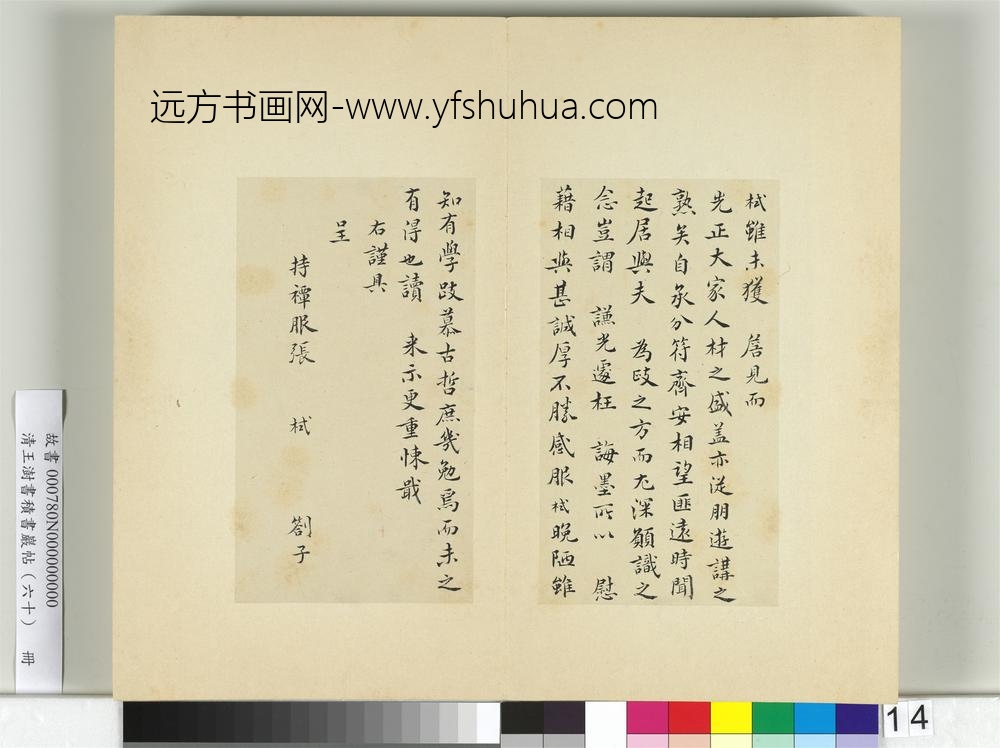 远方书画网-www.yfshuhua.com
栻雖未獲　詹見而
先正大家人材之盛盖亦從朋遊講之
熟矣自承分符齊安相望匪遠時聞
起居與夫　為政之方而尤深願識之
念豈謂　謙光遽枉　誨墨所以　慰
藉相與甚誠厚不勝感服栻晚陋雖
知有學跂慕古哲庶幾勉焉而未之
有得也讀　来示更重悚戢
右謹具
呈
持禫服張　栻　劄子
故書 000780N000000000
清王澍書積書巖帖（六十）　冊
14